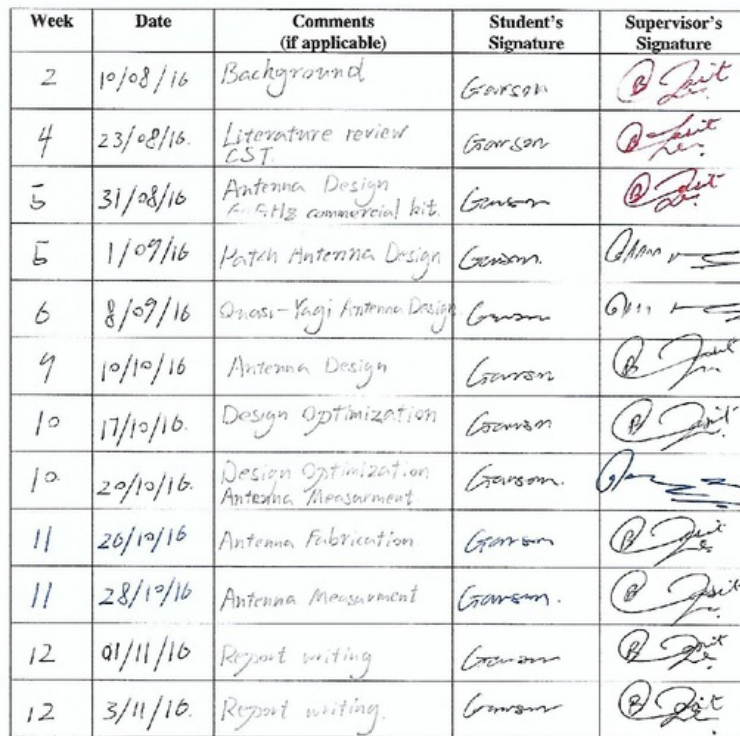 Week Date Comments (if applicable) Student's Signature Supervisor's Signature
2 10/08/16 Background Garson
4 23/08/16. Literature review Garson
CST.
5 31/08/16 Antenna Design Garson
commercial kit.
5 1/09/16 Patch Antenna Design Garson.
6 8/09/16 Quasi-Yagi Antenna Design Garson
9 10/10/16 Antenna Design Garson
10 17/10/16. Design Optimization Garson
10. 20/10/16. Design Optimization Garson.
Antenna Measurment
11 26/10/16 Antenna Fabrication Garson
11 28/10/16 Antenna Measurment Garson.
12 01/11/16 Report writing Garson
12 3/11/16. Report writing. Garson